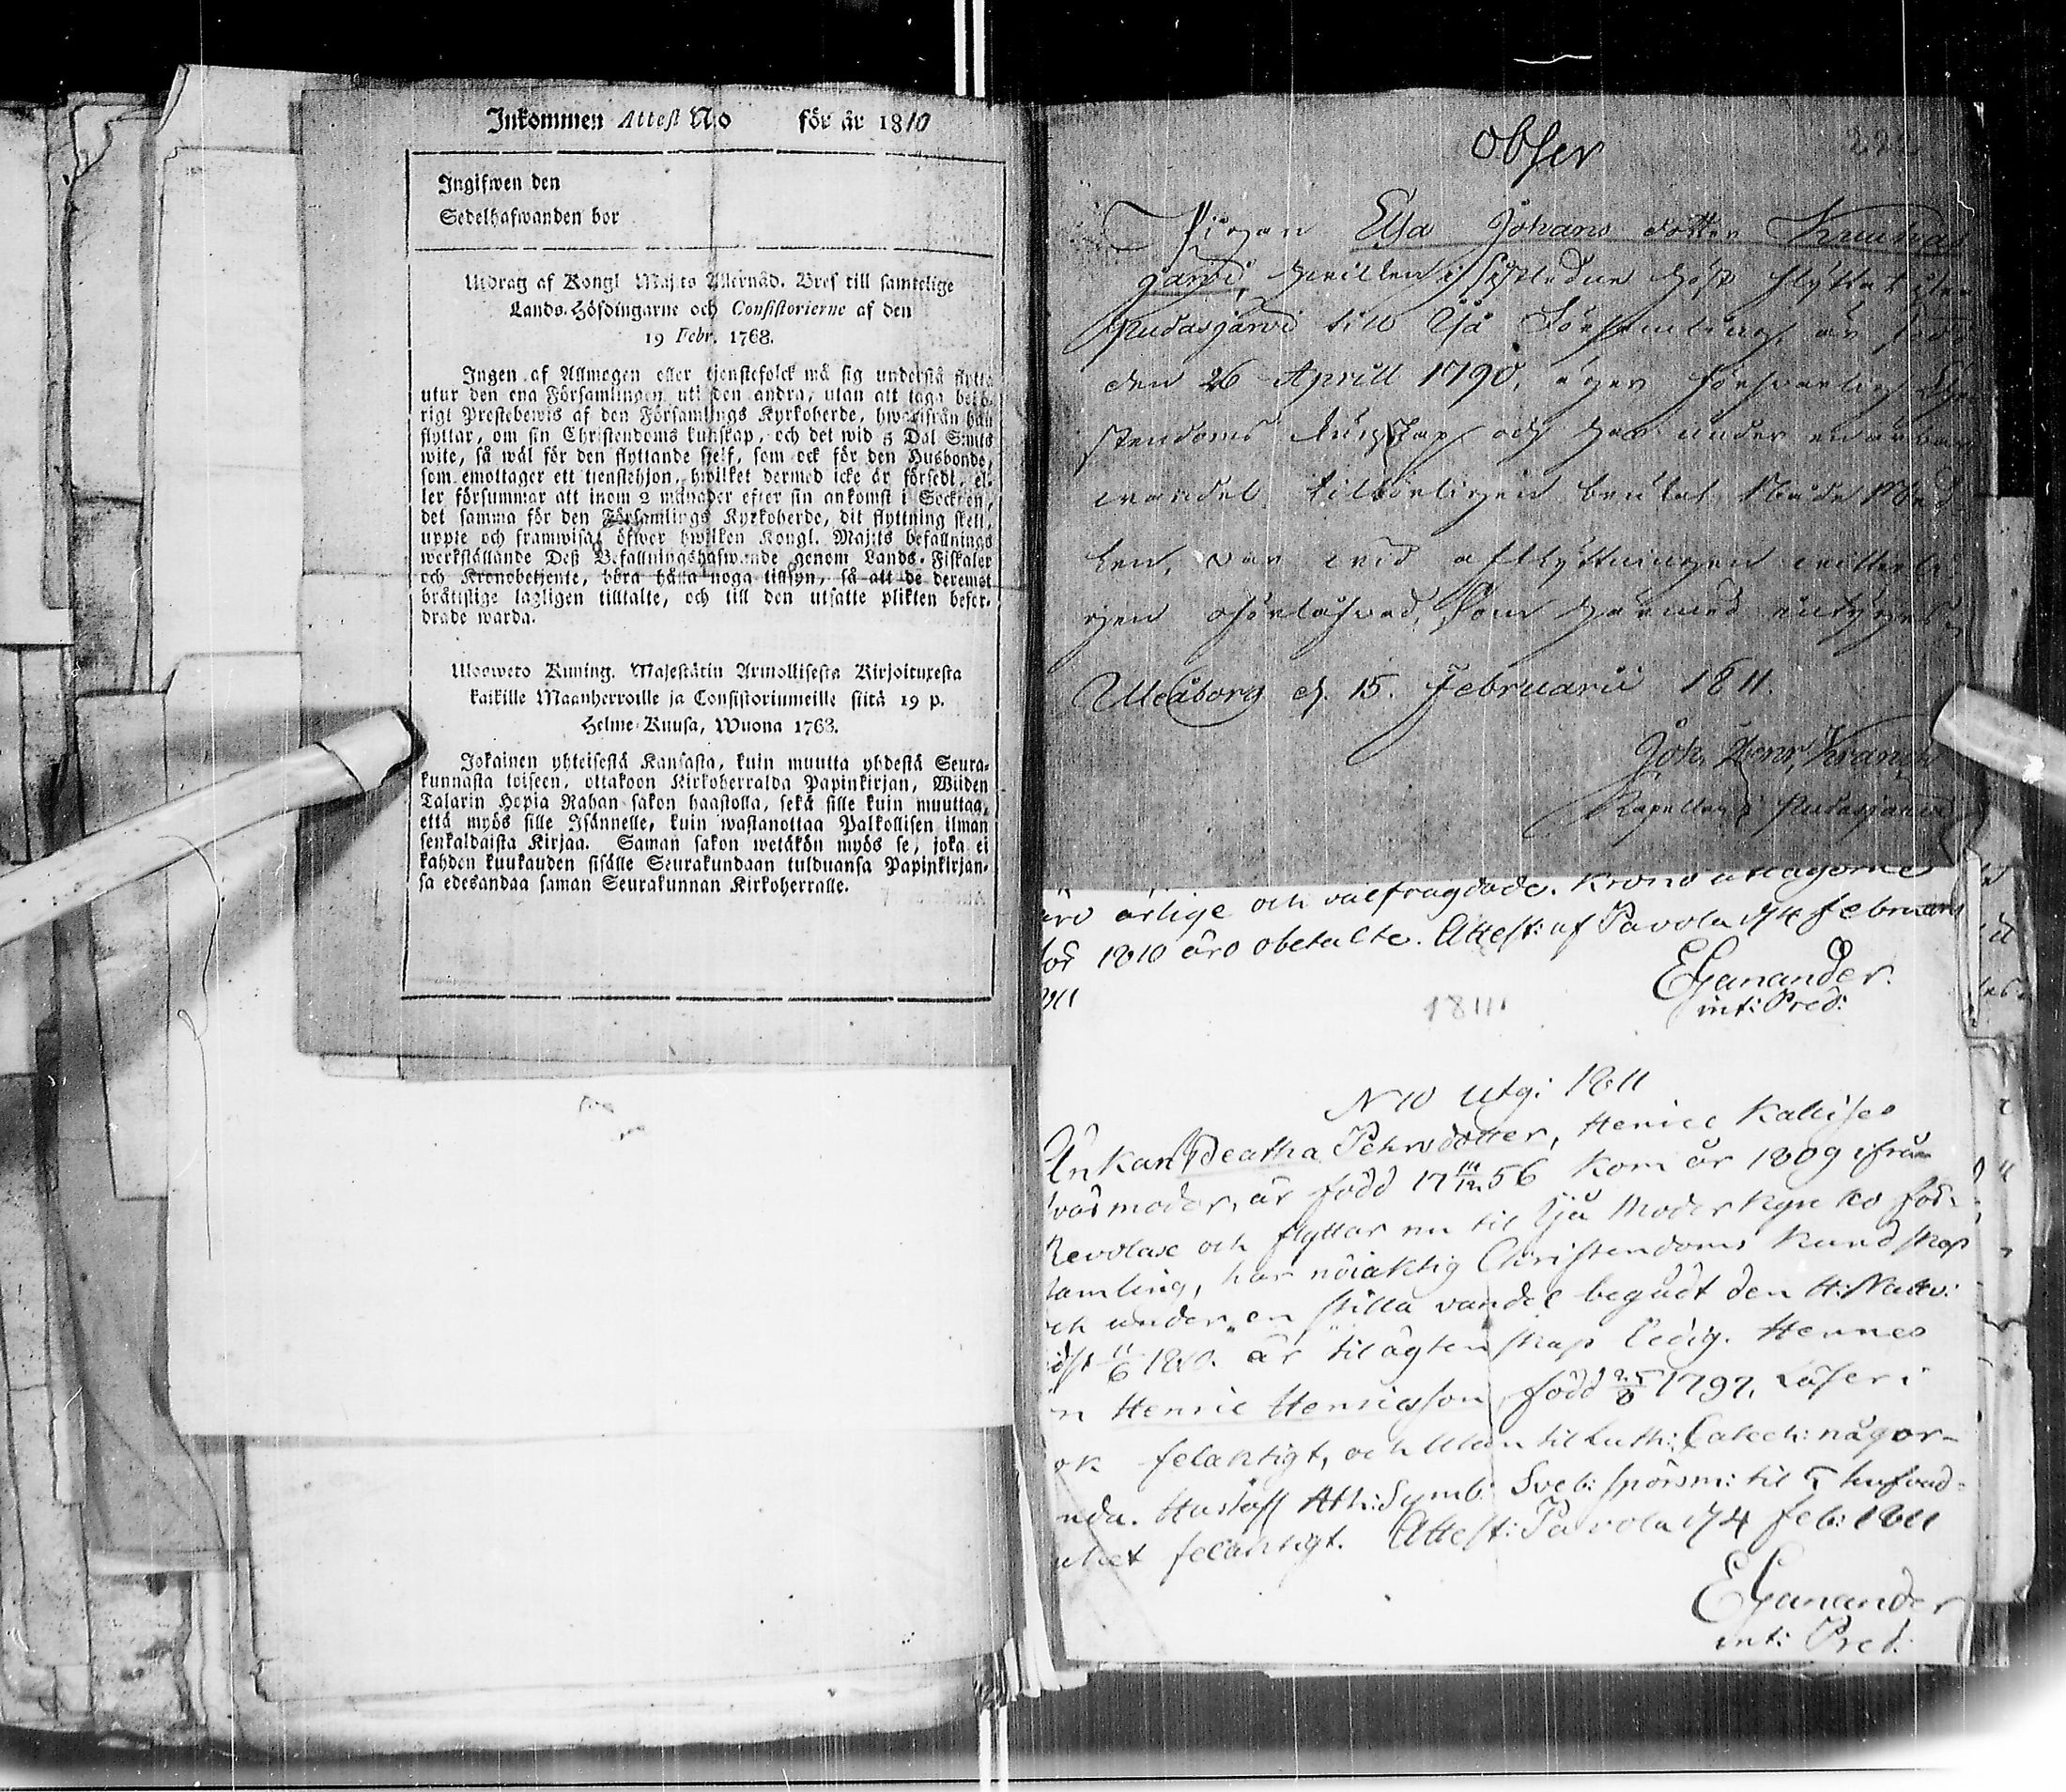 Inkommen Attest No för år 1810
Ingifwen den
Sedelhafwanden bor
Utdrag af Kongl Maj:ts Allernåd. Bref till samtelige
Lands-Höfdingarne och Consistorierne af den
19 Febr. 1768.
Ingen af Allmogen eller tjenstefolck må sig understå flytta
utur den ena Församlingen uti den andra, utan att taga behö-
rigt Prestebewis af den Församlings Kyrkoherde, hwarifrån han
flyttar, om sin Christendoms kunskap, och det wid 5 Dal S:mts
wite, så wäl för den flyttande sjelf, som ock för den Husbonde,
som emottager ett tienstehjon, hwilket dermed icke är försedt, el-
ler försummar att inom 2 månader efter sin ankomst i Socknen,
det samma för den Församlings Kyrkoherde, dit flyttning skett,
uppte och framwisa; öfwer hwilken Kongl. Maj:ts befallnings
werkställande Deß Befallningshafwande genom Lands-Fiskaler
och Kronobetjente, böra hålla noga tillsyn, så att de deremot
bråttslige lagligen tilltalte, och till den utsatte plikten befor-
drade warda.
Uloswето Kuning. Majestätin Armollisesta Kirjoituxesta
kaikille Maanherroille ja Consistoriumeille siitä 19 p.
Helme-Kuusa, Wuona 1768.
Jokainen yhteisestä Kansasta, kuin muutta yhdestä Seura-
kunnasta toiseen, ottakoon Kirkoherralda Papinkirjan, Wiiden
Talarin Hopia Rahan sakon haastolla, sekä sille kuin muuttaa,
että myös sille Isännelle, kuin wastanottaa Palkollisen ilman
senkaldaista Kirjaa. Saman sakon wetäkön myös se, joka ei
kahden kuukauden sisälle Seurakundaan tulduansa Papinkirjan-
sa edesandaa saman Seurakunnan Kirkoherralle.
obser
Pigan Elsa Johans dotter Kruus
järvi, hvilken sistledne höst flyttat
Pudasjärvi till Ijå Församling, är född
den 26 Aprill 1790, äger försvarlig
stendoms kunskap och har under
vandel tilbörligen brukat
var vid afflyttningen
gen oförlofvad, som härmed intygas
Uleåborg d. 15. Februarii 1811.
Joh. Henr. Kranck
Kapellan i Pudasjärvi
äro ärlige och välfrägdade. Krono utlagorne
för 1810 äro obetalte. Attest: af Pavola d/4 februarii
1811
EGanander.
int: Pred:
1811
N 10 utg: 1811
Änkan Beatha Pehrsdotter, Henric Kallises
moder, är född 17 11/12 56 kom år 1809 ifrån
Revolax och flyttar nu til Ijå Moder kyrko för-
samling, har nöiaktig Christendoms kundskap
och under en stilla vandel begådt den H: Nattv:
sidst 11/6 1810. är til ägtenskap ledig. Hennes
Henric Henricsson född 25/8 1797, läser i
bok felaktigt, och utan til Luth: Catech: någor-
lunda. Hustafl Ath: Symb: Sveb: spörsm: til 5 hufvud-
felaktigt. Attest: Pavola d/4 feb: 1811
EGanander
int: Pred: